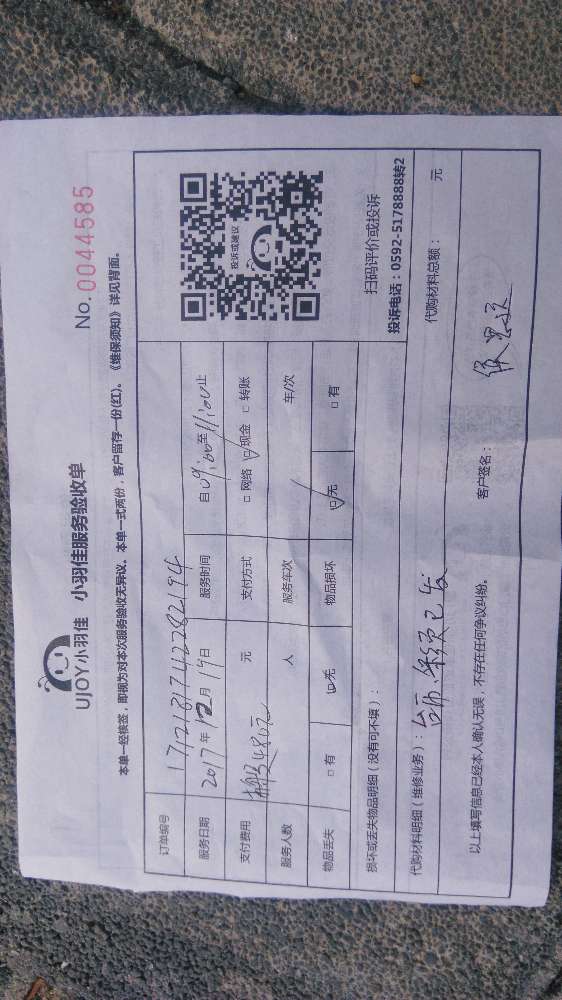 UJOY小羽佳 小羽佳服务验收单
No. 0044585
本单一经核签，即视为对本次服务验收无异议。本单一式两份，客户留存一份(红)。《维保须知》详见背面。
订单编号 1712181742282194
服务日期 2017年12月19日 服务时间 自09:00至11:00止
支付费用 480元 元 支付方式 □网络 ☑现金 □转账
服务人数 人 服务车次 车/次
物品丢失 □有 ☑无 物品损坏 ☑无 □有
投诉或建议
扫码评价或投诉
投诉电话：0592-5178888转2
损坏或丢失物品明细（没有可不填）：
代购材料明细（维修业务）： 已发 代购材料总额： 元
以上填写信息已经本人确认无误，不存在任何争议纠纷。
客户签名：